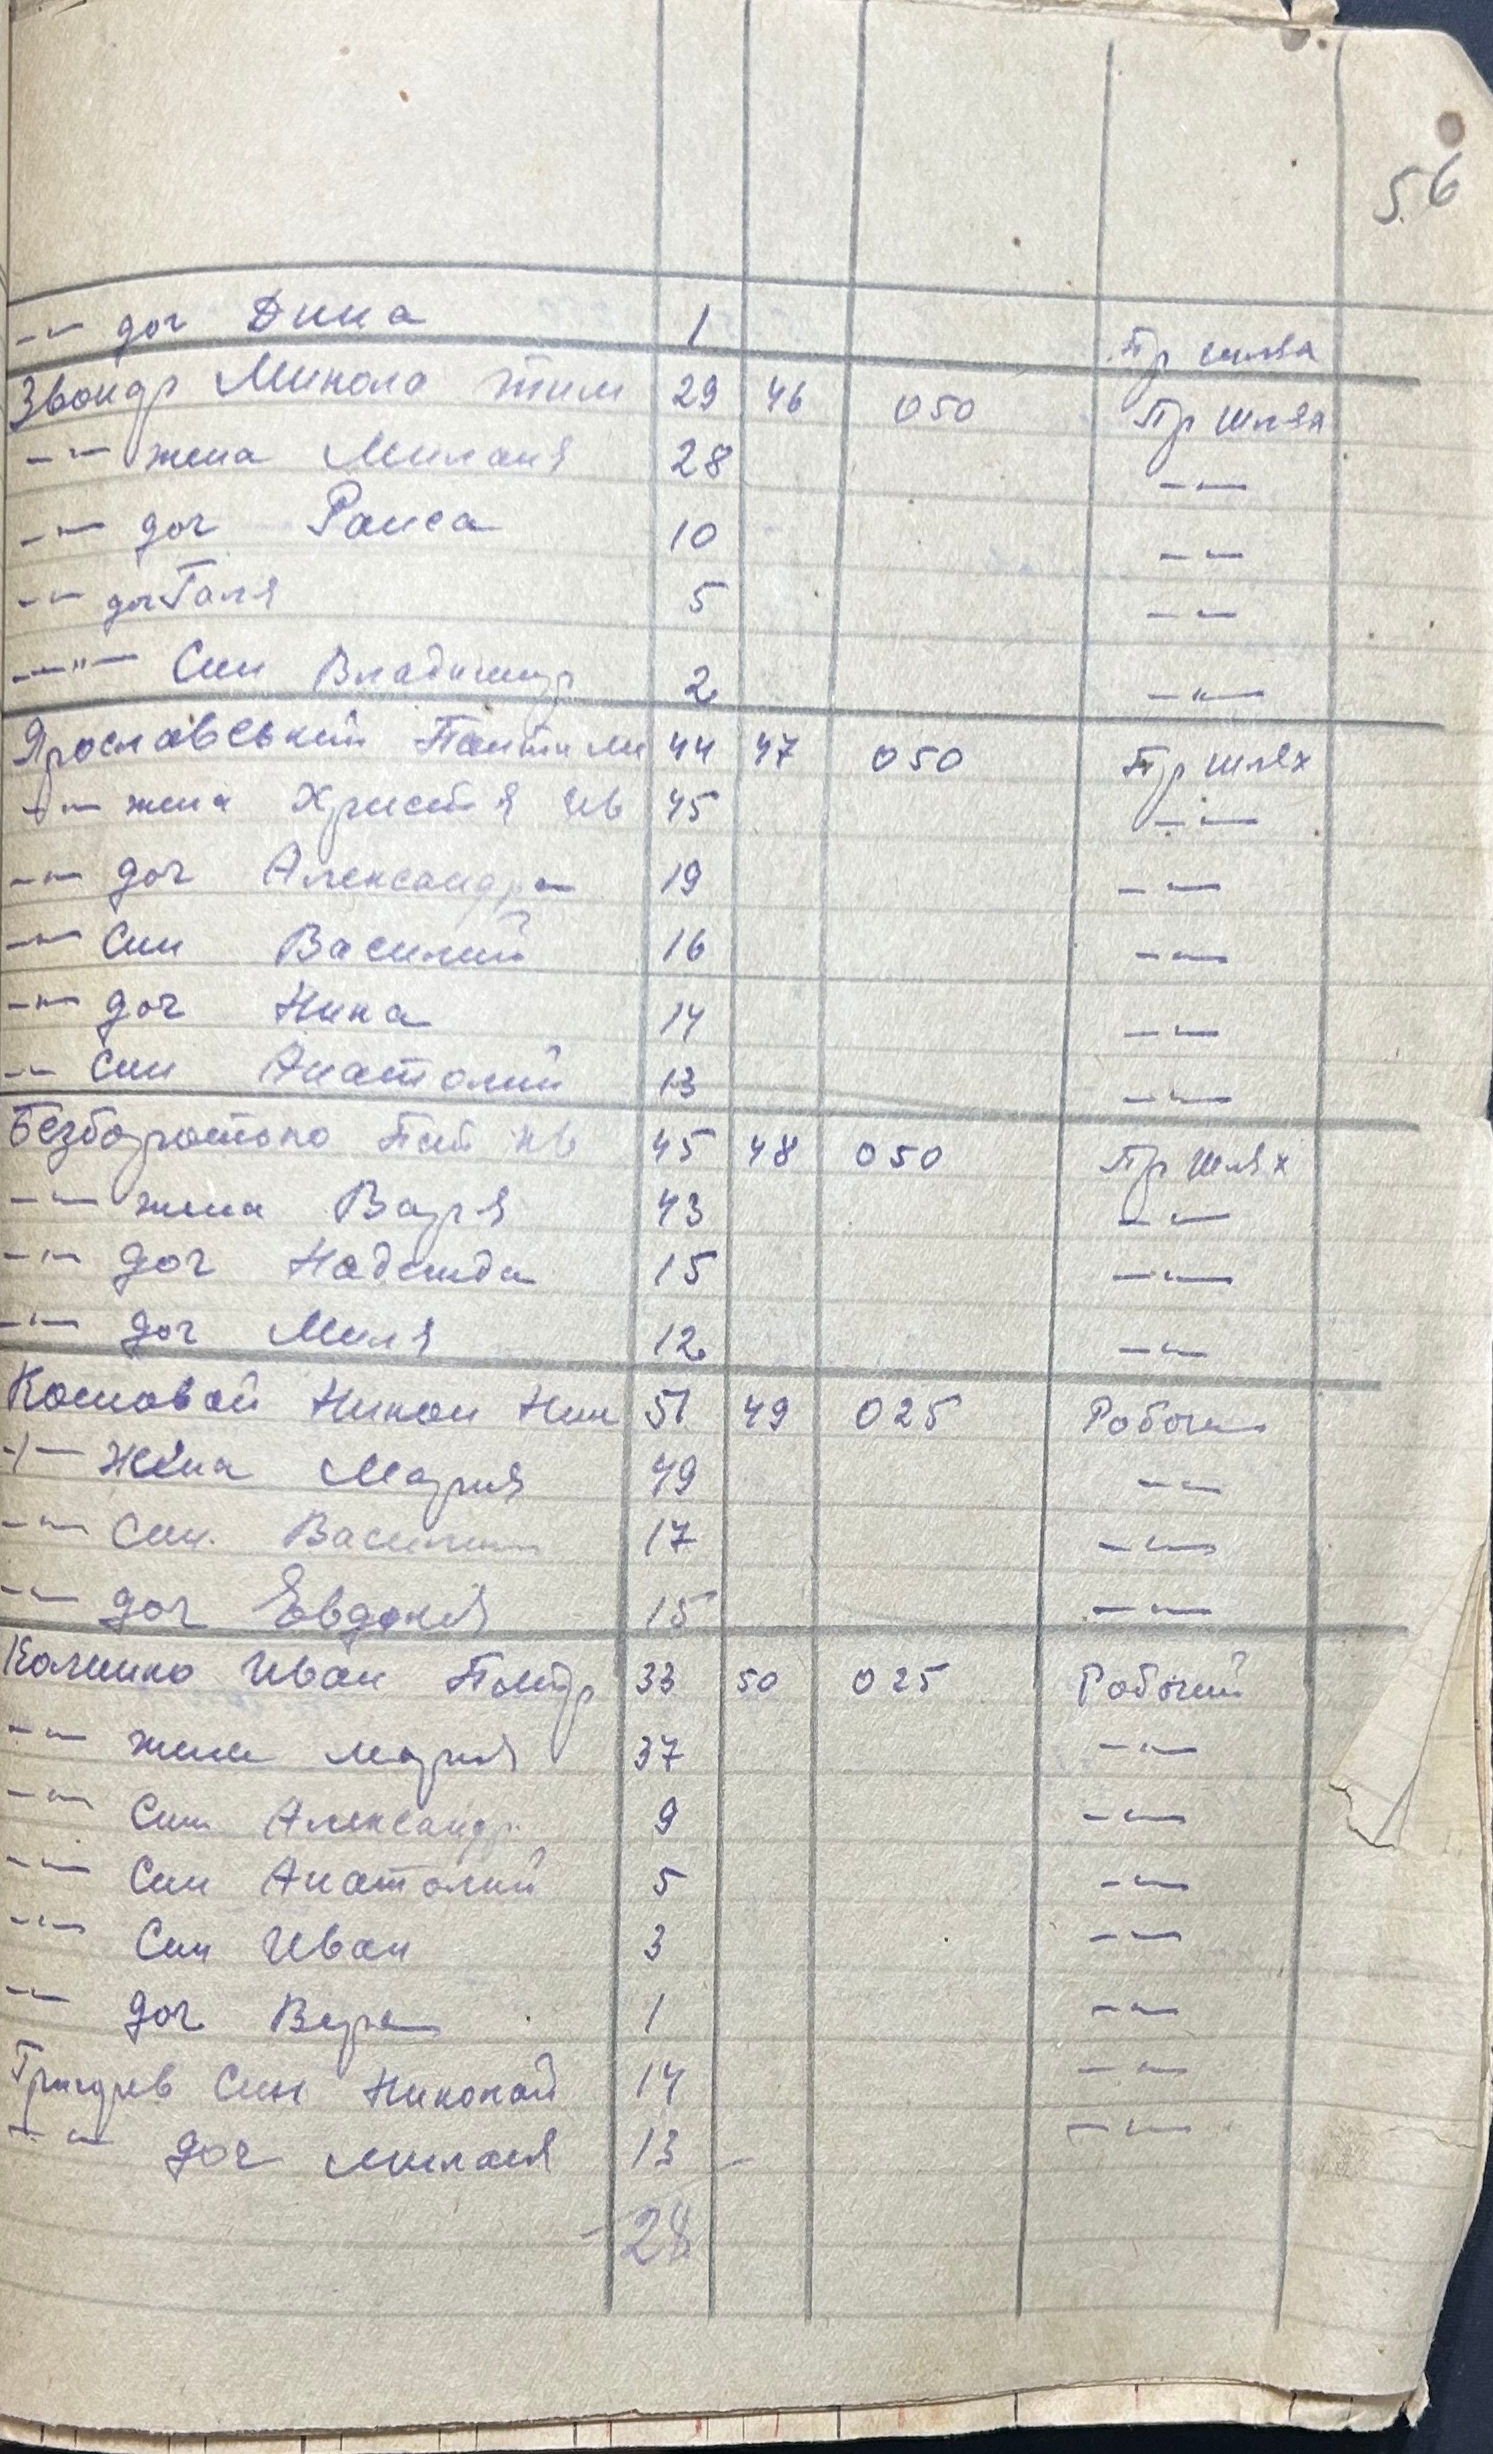 56
-"- доч Дина 1 Пр шляха
Звондр Микола Тим 29 46 050 Пр шляха
-"- жена Миланя 28 -"-
-"- доч Раиса 10 -"-
-"- доч Галя 5 -"-
-"- Син Владимир 2 -"-
Ярославський Пантили 44 47 050 Пр шлях
-"- жена Христя Ив 45 -"-
-"- доч Александра 19 -"-
-"- Син Василий 16 -"-
-"- доч Нина 14 -"-
-"- Син Анатолий 13 -"-
Безбородько Ив 45 48 050 Пр шлях
-"- жена Варя 43 -"-
-"- доч Надежда 15 -"-
-"- доч Миля 12 -"-
Кошовой Никон Ник 51 49 025 Рабочи
-"- Жена Мария 49 -"-
-"- Син. Василий 17 -"-
-"- доч Евдокия 15 -"-
Иван Петр 33 50 025 Робочий
-"- жена Мария 37 -"-
-"- Син Александр 9 -"-
-"- Син Анатолий 5 -"-
-"- Син Иван 3 -"-
-"- доч Вера 1 -"-
Син Николай 14 -"-
-"- доч Миланя 13 -"-
28